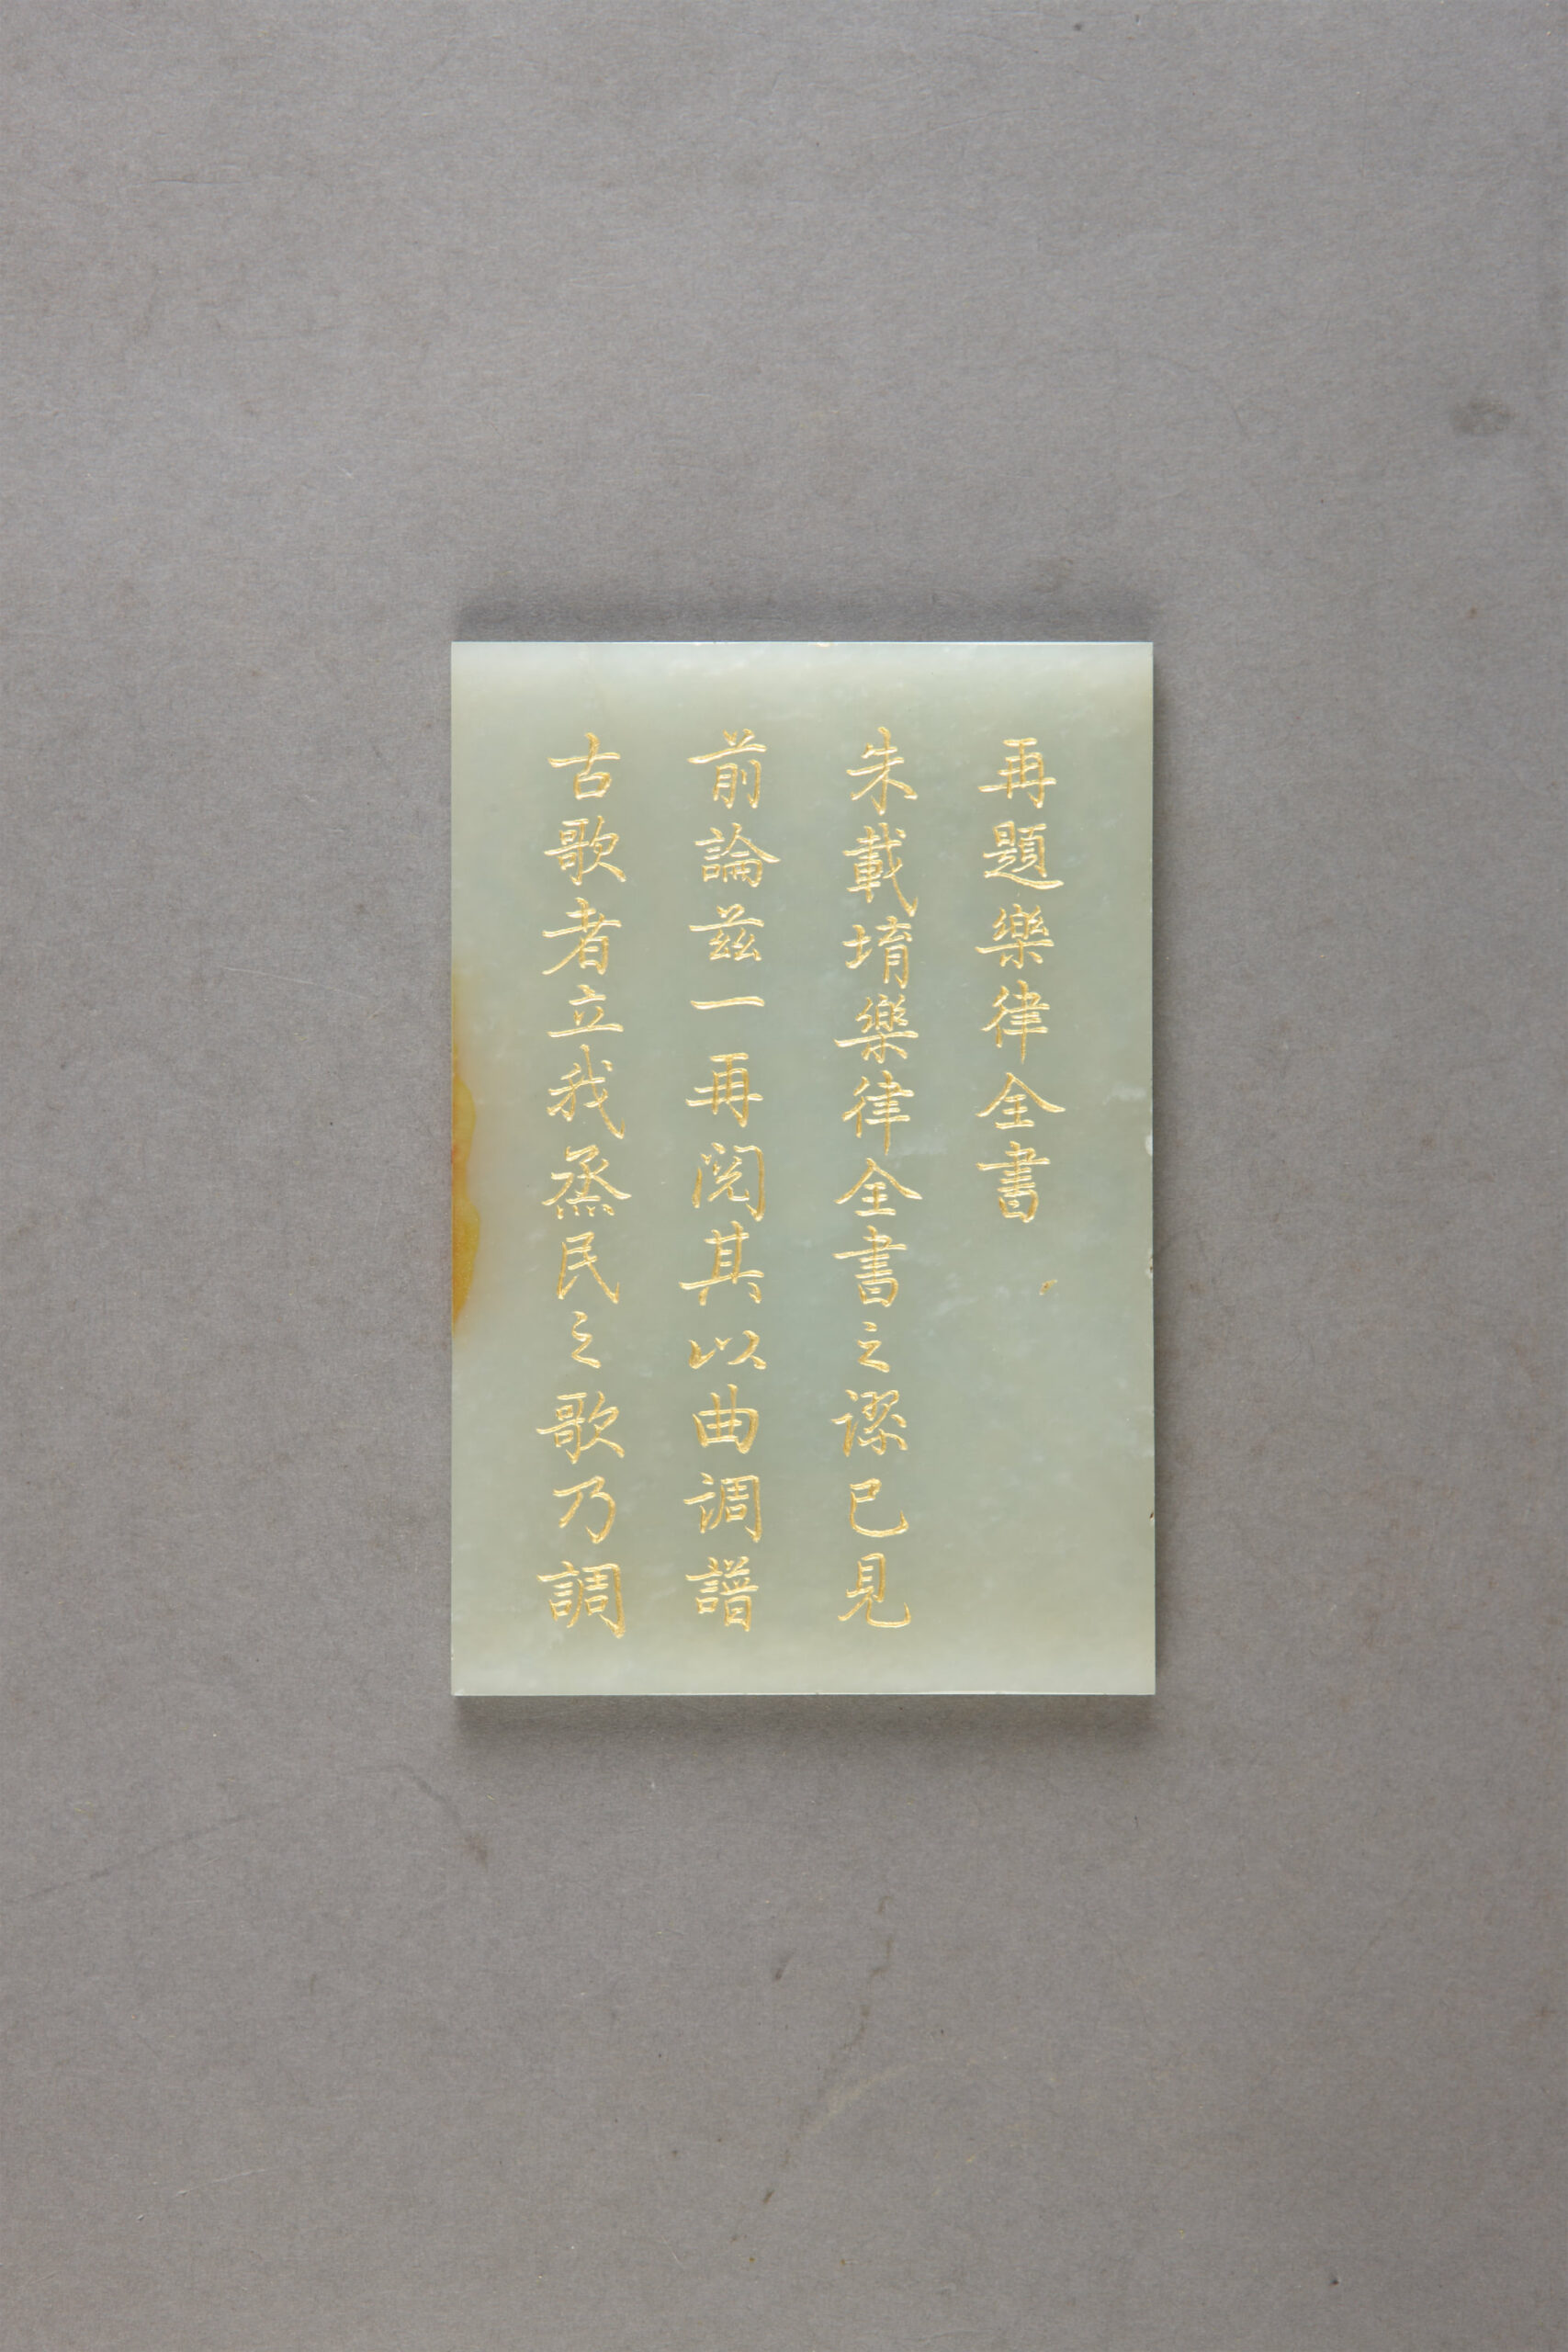 再題樂律全書
朱載堉樂律全書之謬已見
前論茲一再閱其以曲調譜
古歌者立我烝民之歌乃調